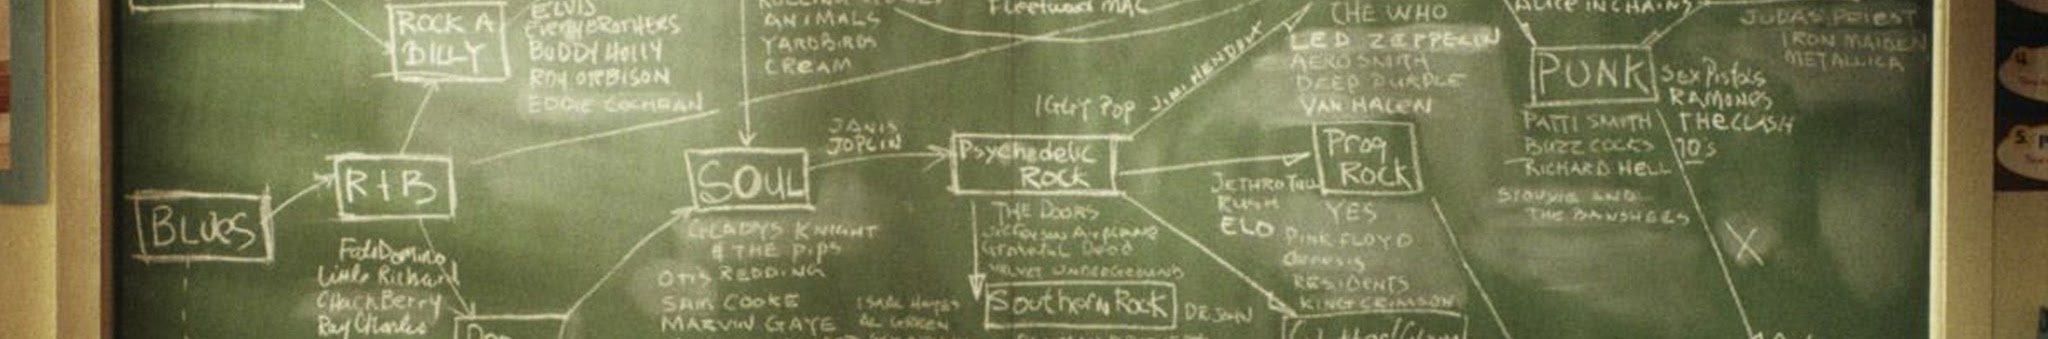 ROCK A
BILLY
ELVIS
Everly BROTHERS
BUDDY HOLLY
ROY ORBISON
EDDIE COCHRAN
ANIMALS
YARDBIRDS
CREAM
Fleetwood MAC
THE WHO
LED ZEPPELIN
AEROSMITH
DEEP PURPLE
VAN HALEN
ALICE IN CHAINS
JUDAS PRIEST
IRON MAIDEN
METALLICA
PUNK
SEX PISTOLS
RAMONES
THE CLASH
70's
PATTI SMITH
BUZZ COCKS
RICHARD HELL
SIOUXSIE AND
THE BANSHEES
X
BLUES
R+B
Fats Domino
Little Richard
Chuck Berry
Ray Charles
SOUL
GLADYS KNIGHT
& THE PIPS
OTIS REDDING
SAM COOKE
MARVIN GAYE
ISAAC HAYES
AL GREEN
JANIS
JOPLIN
IGGY POP
JIMI HENDRIX
Psychedelic
Rock
THE DOORS
Jefferson Airplane
Grateful Dead
VELVET UNDERGROUND
Southern Rock
DR JOHN
Prog
Rock
JETHRO TULL
RUSH
ELO
YES
PINK FLOYD
Genesis
RESIDENTS
KING CRIMSON